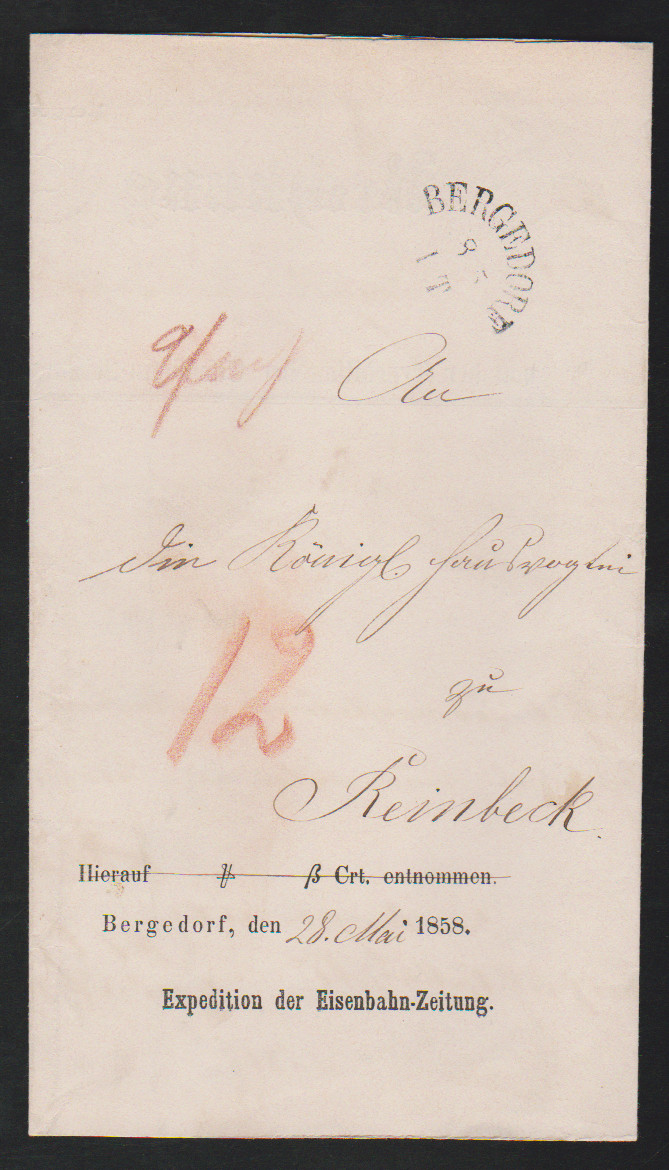 BERGEDORF
An
die Königl Hausvogtei
12
zu
Reinbeck.
Hierauf ß Crt. entnommen.
Bergedorf, den 28. Mai 1858.
Expedition der Eisenbahn-Zeitung.